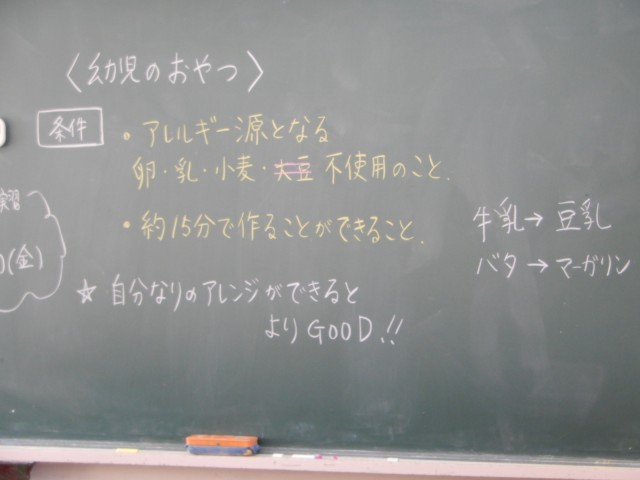 〈幼児のおやつ〉
条件
・アレルギー源となる
卵・乳・小麦・大豆 不使用のこと.
・約15分で作ることができること.
☆ 自分なりのアレンジができると
よりGOOD!!
牛乳→豆乳
バタ→マーガリン
実習
(金)